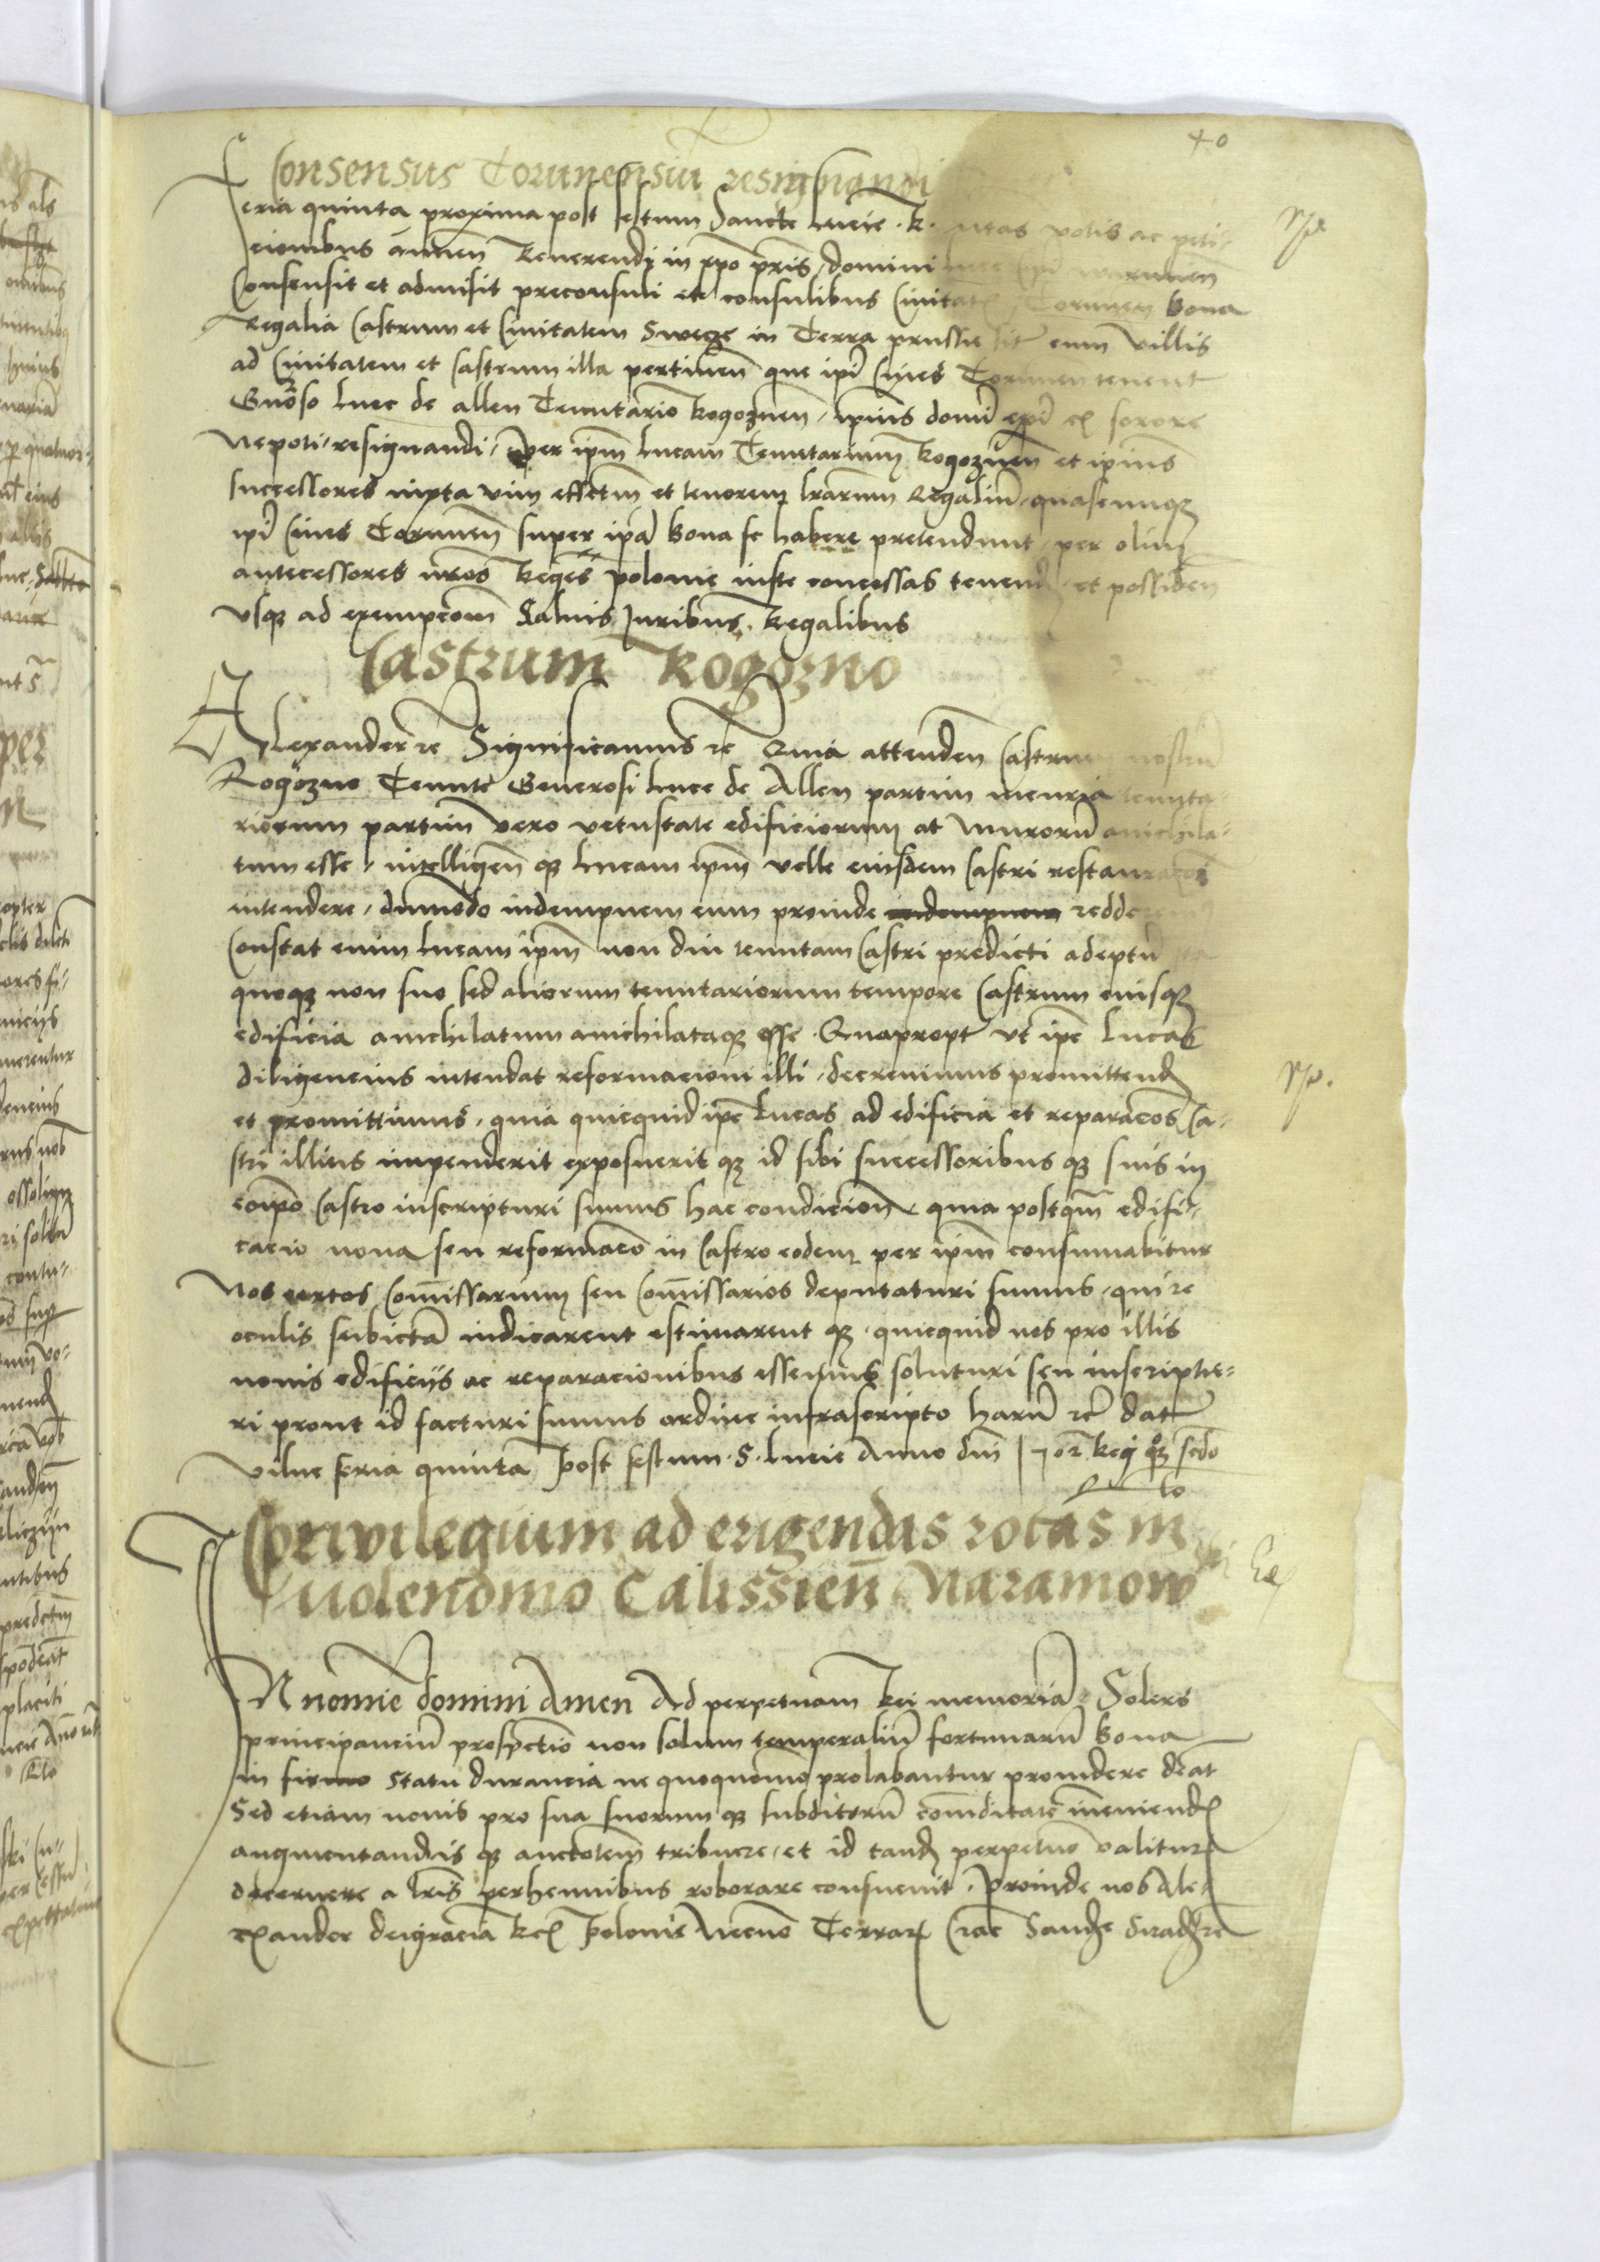 40
Consensus Torunensiu resignandi
Feria quinta proxima post festum Sancte Lucie . R. votis ac peti-
cionibus annuen Reverendi in xpo pris domini
Consensit et admisit preconsuli et consulibus Civitatis Torunen bona
Regalia Castrum et Civitatem Swecze in Terra prussie cum villis
ad Civitatem et Castrum illa pertinen que ipi Cives Torunen tenent
Gnoso Luce de allen Tenutario Rogoznen, ipius domi epi ex sorore
Nepoti resignandi, per ipm Lucam Tenutarium Rogoznen et ipius
successores iuxta vim effctm et tenorem lrarum Regaliu quascunq
ipi Cives Torunen super ipa bona se habere pretendunt per olim
antecessores nros Reges polonie iuste concessas tenend et possiden
vsq ad exempcom Salvis Juribus Regalibus
Castrum Rogozno
Alexander zc Significamus zc Quia attenden Castrum nostru
Rogozno Tenute Generosi Luce de Allen partim incuria tenuta-
riorum partim vero vetustate edificiorum at muroru anichila-
tum esse, intelligen q Lucam ipm velle eiusdem Castri restauracoi
intendere, dummodo indempnem eum proinde indempnem redde
Constat enim Lucam ipm non diu tenutam Castri predicti adeptu
quoq non suo sed aliorum tenutariorum tempore Castrum eiusq
edificia anichilatum anichilataq esse . Quapropt vt ipe Lucas
diligencius intendat reformacioni illi, decrevimus promittend
et promittimus, quia quicquid ipe Lucas ad edificia et reparacos Ca-
stri illius impenderit exposuerit q id sibi successoribus q suis in
eoipo Castro inscripturi sumus hac condicione quia postqm edifi-
cacio nova seu reformaco in Castro eodem per ipm consumabitur
Nos certos Comissarium seu Comissarios deputaturi sumus, qui re
oculis subiecta iudicarent estimarent q quicquid nos pro illis
novis edificijs ac reparacionibus essemus soluturi seu inscriptu-
ri prout id facturi sumus ordine infrascripto haru zc dat
vilne feria quinta post festum . S. Lucie Anno dni
to
privilegium ad erigendas rotas in
Calissien Naramow
IN nomie domini Amen Ad perpetuam Rei memoria Solers
principanciu prospectio non solum temporaliu fortunaru bona
in firmo statu durancia ne quoquomo prolabantur providere deat
Sed etiam novis pro sua suorum q subditoru comoditate inveniend
augmentandis q auctotem tribuere, et id tand perpetuo valitura
decernere a lris perhennibus roborare consuevit . Proinde nos Ale-
xander dei gracia Rex Polonie Necno Terrar Crac Sand Siradz